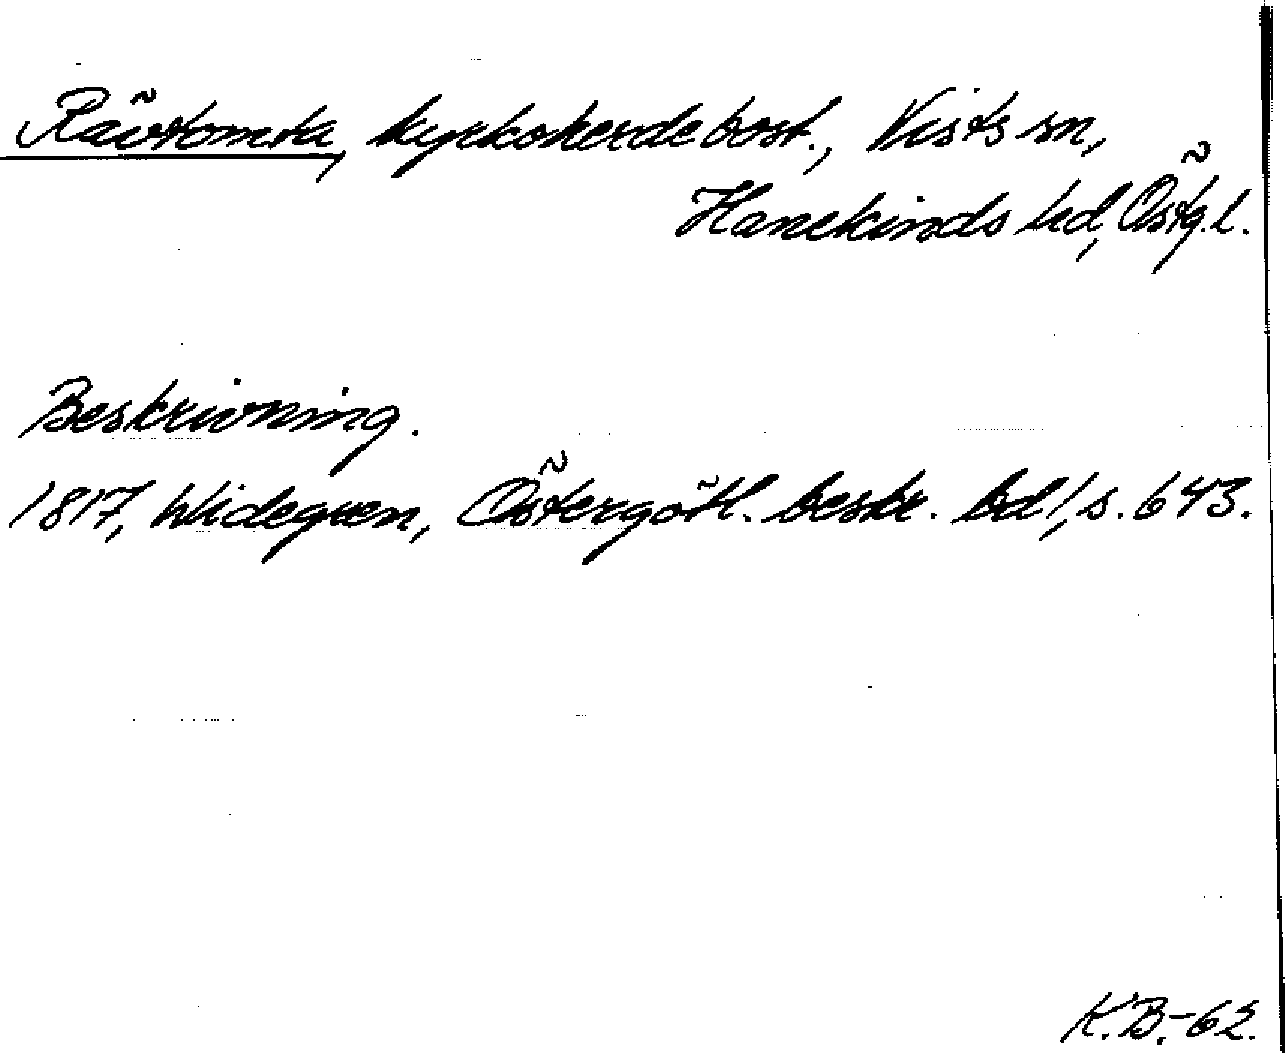 Rävtomta, kyrkoherdebost., Vists sn,
Hanekinds hd, Östg.l.
Beskrivning.
1817, Widegren, Östergötl. beskr. bd 1, s. 643.
K.B.-62.